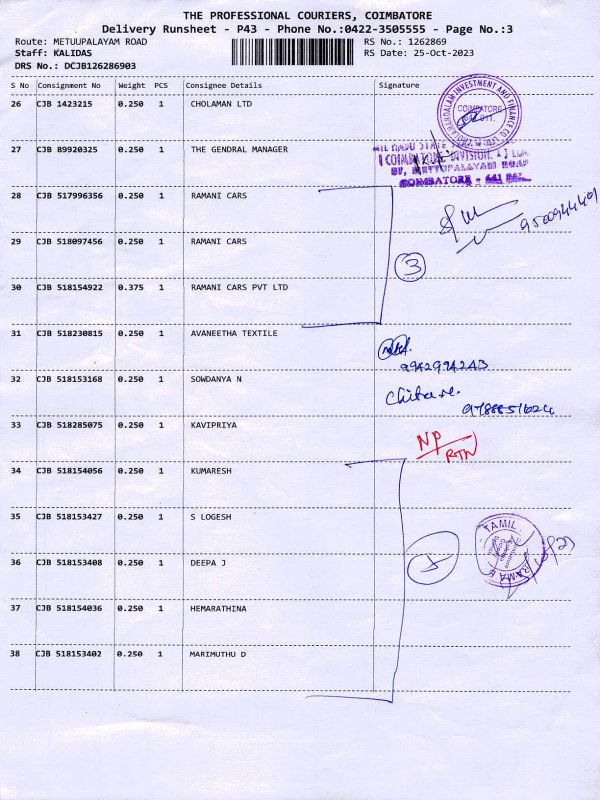 THE PROFESSIONAL COURIERS, COIMBATORE
Delivery Runsheet - P43 - Phone No.:0422-3505555 - Page No.:3
Route: METUUPALAYAM ROAD RS No.: 1262869
Staff: KALIDAS RS Date: 25-Oct-2023
DRS No.: DCJB126286903
S No Consignment No Weight PCS Consignee Details Signature
26 CJB 1423215 0.250 1 CHOLAMAN LTD
COIMBATORE
27 CJB 89920325 0.250 1 THE GENDRAL MANAGER
METTUPALAYAM ROAD
COIMBATORE - 641
28 CJB 517996356 0.250 1 RAMANI CARS
29 CJB 518097456 0.250 1 RAMANI CARS
3
30 CJB 518154922 0.375 1 RAMANI CARS PVT LTD
31 CJB 518230815 0.250 1 AVANEETHA TEXTILE
9942994243
32 CJB 518153168 0.250 1 SOWDANYA N
33 CJB 518285075 0.250 1 KAVIPRIYA
NP/RTN
34 CJB 518154056 0.250 1 KUMARESH
35 CJB 518153427 0.250 1 S LOGESH
TAMIL
36 CJB 518153408 0.250 1 DEEPA J
37 CJB 518154036 0.250 1 HEMARATHINA
38 CJB 518153402 0.250 1 MARIMUTHU D